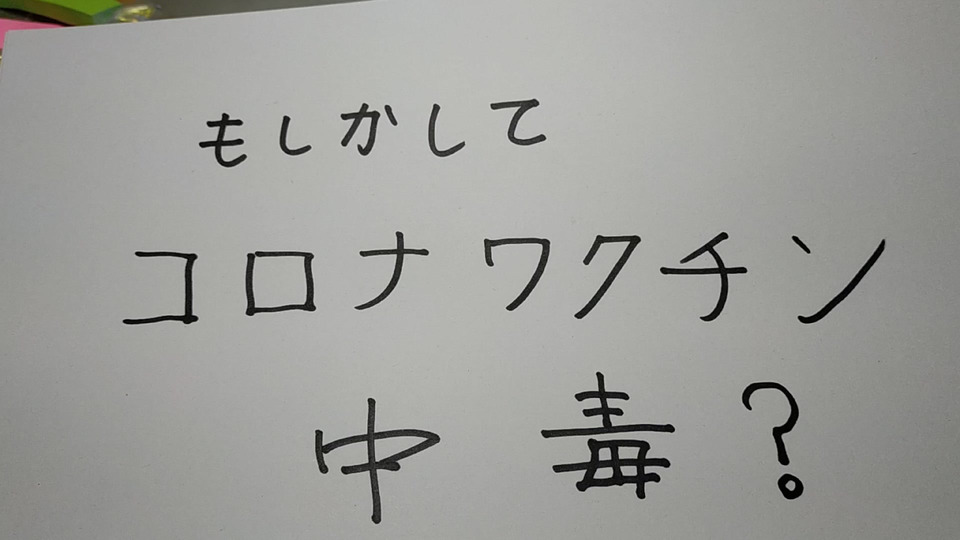 もしかして
コロナワクチン
中毒?